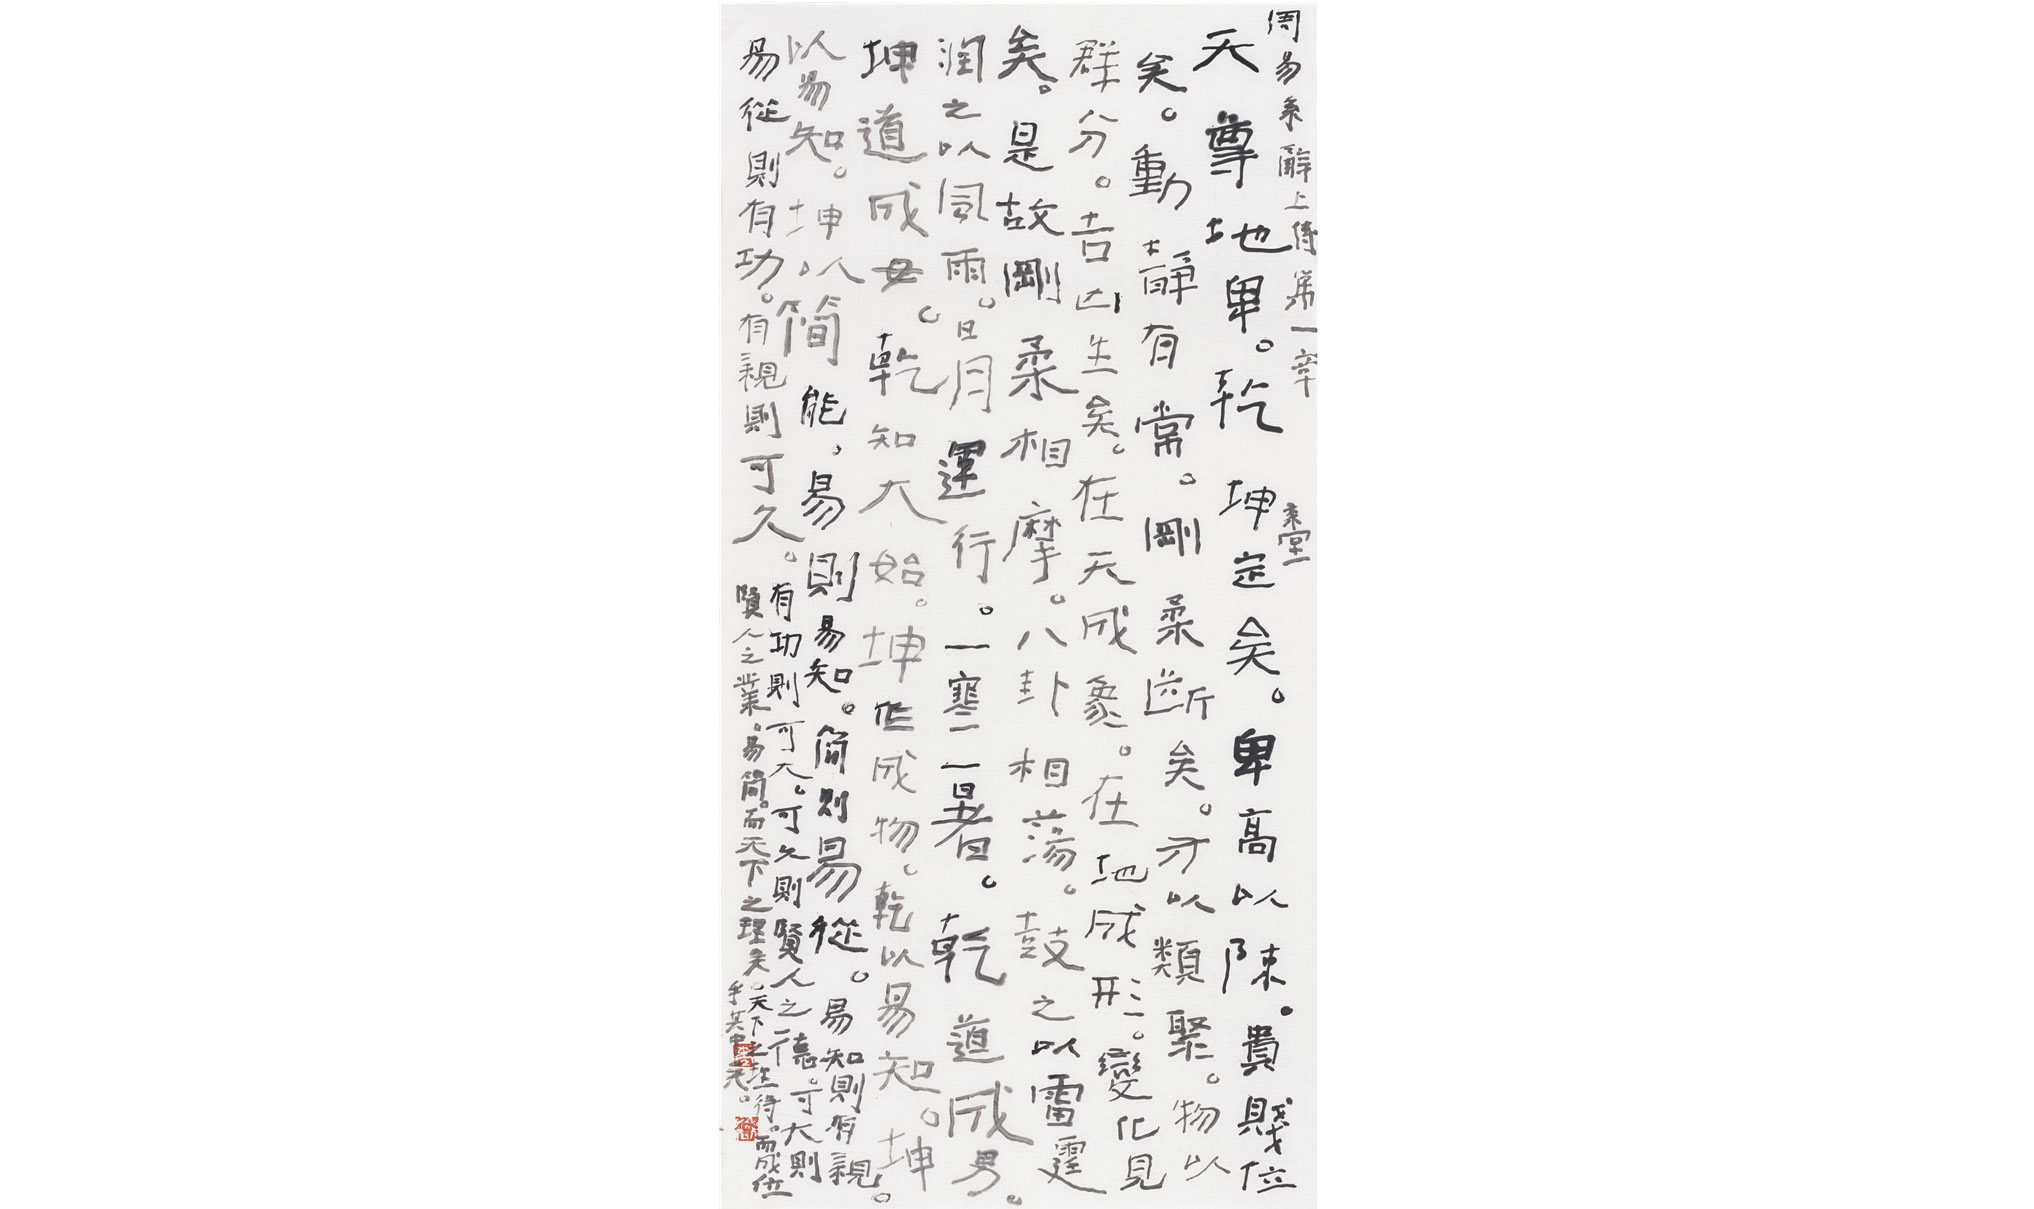 周易系辭上傳第一章
乘堂
天尊地卑。乾坤定矣。卑高以陳。貴賤位
矣。動靜有常。剛柔斷矣。方以類聚。物以
群分。吉凶生矣。在天成象。在地成形。變化見
矣。是故剛柔相摩。八卦相荡。鼓之以雷霆
润之以风雨。日月運行。一寒一暑。乾道成男。
坤道成女。乾知大始。坤作成物。乾以易知。坤
以易知。坤以简能。易則易知。简则易從。易知則有親。
易從則有功。有親則可久。
有功則可大。可久則賢人之德。可大則
賢人之業。易簡。而天下之理矣。天下之理得。而成位
乎其中矣。